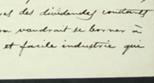 des dividendes constants
vaudrait se borner à
et facile industrie que